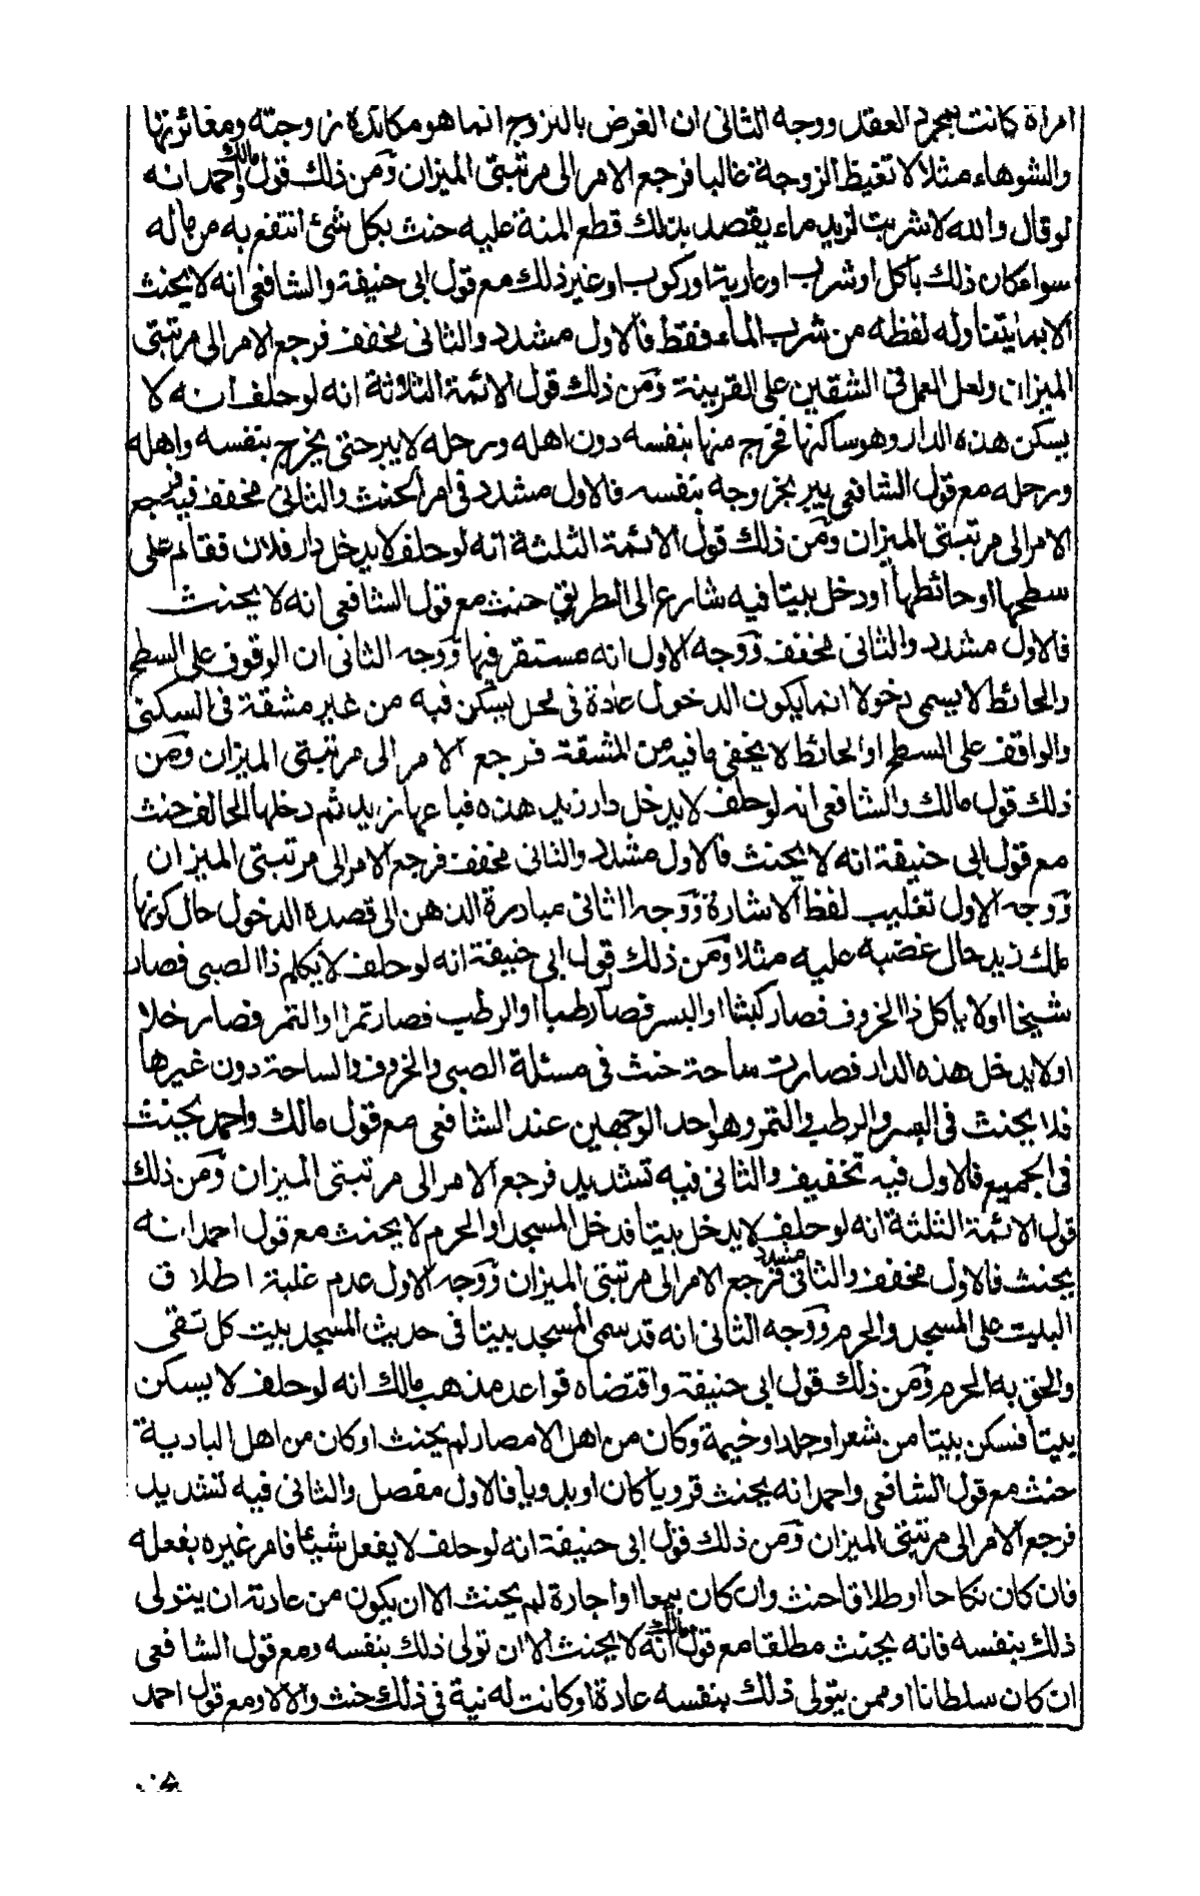 امرأة كانت بمجرد العقد ووجه الثانى ان الغرض بالتزوج انما هو مكائدة زوجته ومغائرتها
والشوهاء مثلا لا تغيظ الزوجة غالبا فرجع الامر الى مرتبتى الميزان ومن ذلك قول مالك واحمد انه
لو قال والله لا شربت لزيد ماء يقصد بذلك قطع المنة عليه حنث بكل شئ انتفع به من ماله
سواء كان ذلك باكل او شرب او عارية او ركوب او غير ذلك مع قول ابى حنيفة والشافعى انه لا يحنث
الا بما يتناوله لفظه من شرب الماء فقط فالاول مشدد والثانى مخفف فرجع الامر الى مرتبتى
الميزان ولعل العمل فى الشقين على القرينة ومن ذلك قول الائمة الثلاثة انه لو حلف انه لا
يسكن هذه الدار وهو ساكنها فخرج منها بنفسه دون اهله ورحله لا يبر حتى يخرج بنفسه واهله
ورحله مع قول الشافعى يبر بخروجه بنفسه فالاول مشدد فى امر الحنث والثانى مخفف فيه فرجع
الامر الى مرتبتى الميزان ومن ذلك قول الائمة الثلثة انه لو حلف لا يدخل دار فلان فقام على
سطحها او حائطها او دخل بيتا فيه شارع الى الطريق حنث مع قول الشافعى انه لا يحنث
فالاول مشدد والثانى مخفف ووجه الاول انه مستقر فيها ووجه الثانى ان الوقوف على السطح
والحائط لا يسمى دخولا انما يكون الدخول عادة فى محل يسكن فيه من غير مشقة فى السكنى
والواقف على السطح او الحائط لا يخفى ما فيه من المشقة فرجع الامر الى مرتبتى الميزان ومن
ذلك قول مالك والشافعى انه لو حلف لا يدخل دار زيد هذه فباعها زيد ثم دخلها الحالف حنث
مع قول ابى حنيفة انه لا يحنث فالاول مشدد والثانى مخفف فرجع الامر الى مرتبتى الميزان
ووجه الاول تغليب لفظ الاشارة ووجه الثانى مبادرة الذهن الى قصده الدخول حال كونها
ملك زيد حال غضبه عليه مثلا ومن ذلك قول ابى حنيفة انه لو حلف لا يكلم ذا الصبى فصار
شيخا او لا ياكل ذا الخروف فصار كبشا او البسر فصار رطبا او الرطب فصار تمرا او التمر فصار خلا
او لا يدخل هذه الدار فصارت ساحة حنث فى مسئلة الصبى والخروف والساحة دون غيرها
فلا يحنث فى البسر والرطب والتمر وهو احد الوجهين عند الشافعى مع قول مالك واحمد يحنث
فى الجميع فالاول فيه تخفيف والثانى فيه تشديد فرجع الامر الى مرتبتى الميزان ومن ذلك
قول الائمة الثلثة انه لو حلف لا يدخل بيتا فدخل المسجد او الحرم لا يحنث مع قول احمد انه
يحنث فالاول مخفف والثانى مشدد فرجع الامر الى مرتبتى الميزان ووجه الاول عدم غلبة اطلاق
البيت على المسجد والحرم ووجه الثانى انه قد سمى المسجد بيتا فى حديث المسجد بيت كل تقى
والحق به الحرم ومن ذلك قول ابى حنيفة واقتضاه قواعد مذهب مالك انه لو حلف لا يسكن
بيتا فسكن بيتا من شعر او جلد او خيمة وكان من اهل الامصار لم يحنث او كان من اهل البادية
حنث مع قول الشافعى واحمد انه يحنث قرويا كان او بدويا فالاول مفصل والثانى فيه تشديد
فرجع الامر الى مرتبتى الميزان ومن ذلك قول ابى حنيفة انه لو حلف لا يفعل شيئا فامر غيره بفعله
فان كان نكاحا او طلاقا حنث وان كان بيعا او اجارة لم يحنث الا ان يكون من عادته ان يتولى
ذلك بنفسه فانه يحنث مطلقا مع قول مالك انه لا يحنث الا ان تولى ذلك بنفسه ومع قول الشافعى
ان كان سلطانا او ممن يتولى ذلك بنفسه عادة او كانت له نية فى ذلك حنث والا لا ومع قول احمد